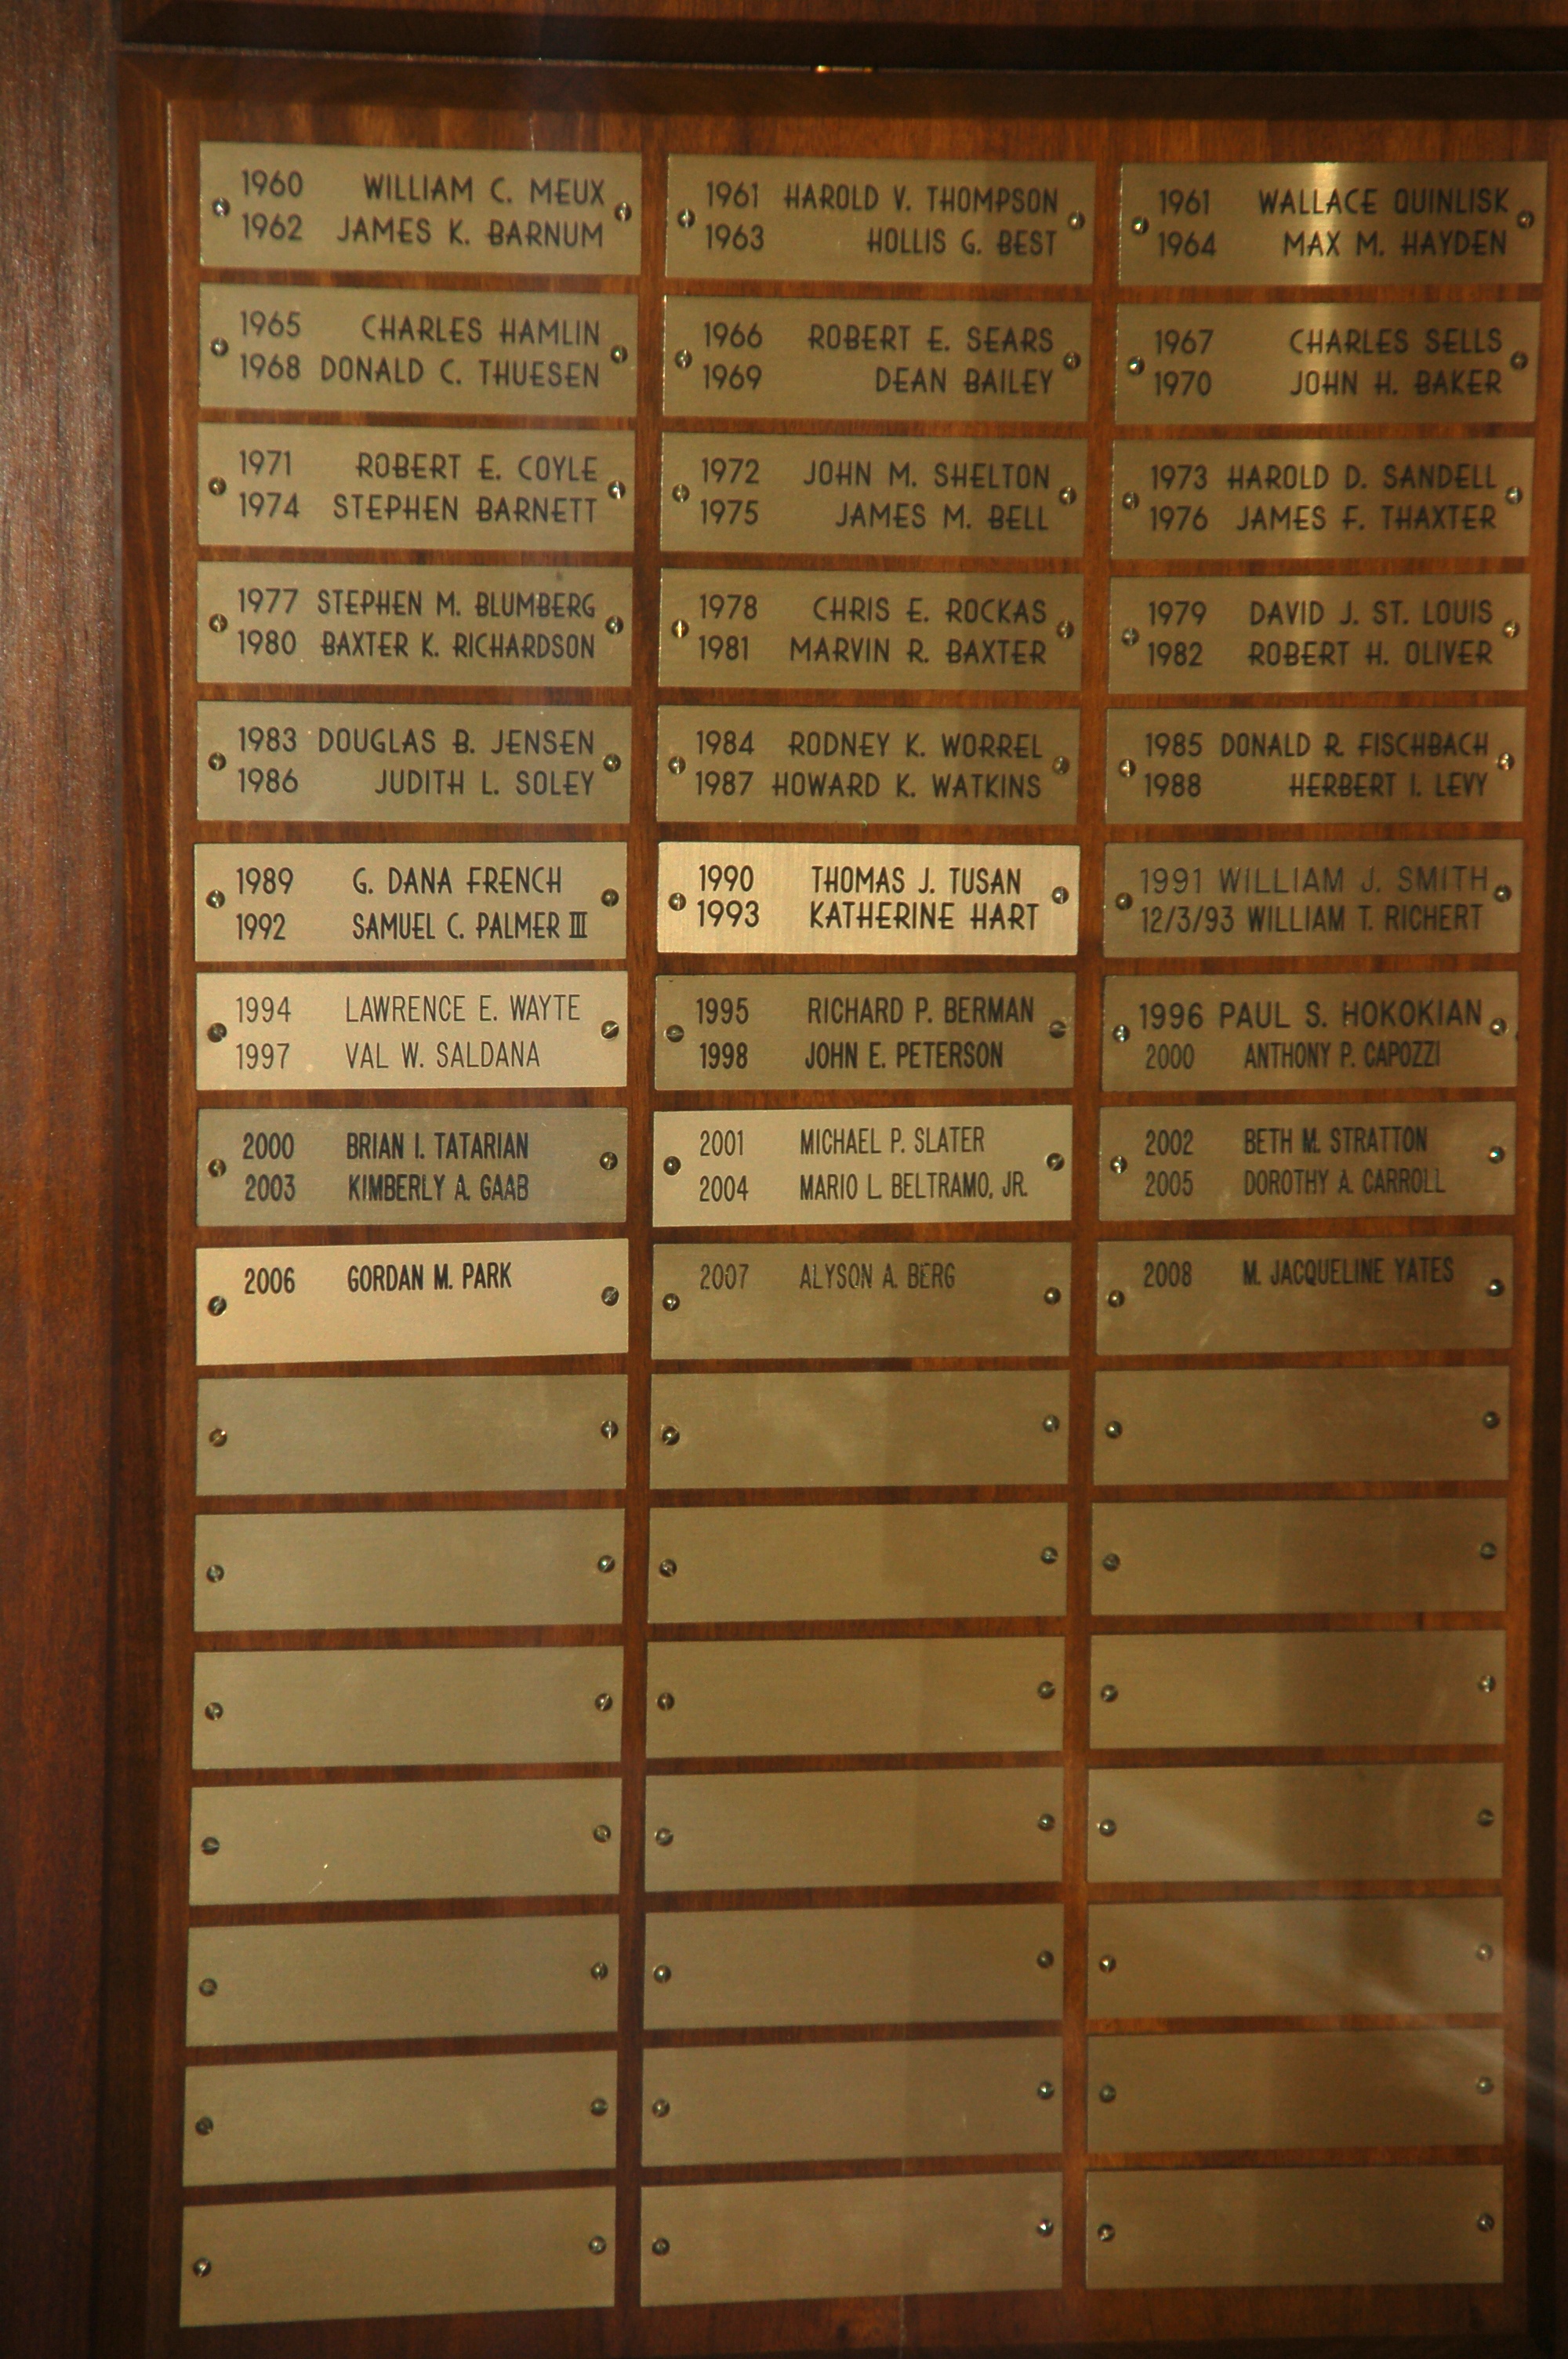 1960 WILLIAM C. MEUX
1962 JAMES K. BARNUM
1961 HAROLD V. THOMPSON
1963 HOLLIS G. BEST
1961 WALLACE QUINLISK
1964 MAX M. HAYDEN
1965 CHARLES HAMLIN
1968 DONALD C. THUESEN
1966 ROBERT E. SEARS
1969 DEAN BAILEY
1967 CHARLES SELLS
1970 JOHN H. BAKER
1971 ROBERT E. COYLE
1974 STEPHEN BARNETT
1972 JOHN M. SHELTON
1975 JAMES M. BELL
1973 HAROLD D. SANDELL
1976 JAMES F. THAXTER
1977 STEPHEN M. BLUMBERG
1980 BAXTER K. RICHARDSON
1978 CHRIS E. ROCKAS
1981 MARVIN R. BAXTER
1979 DAVID J. ST. LOUIS
1982 ROBERT H. OLIVER
1983 DOUGLAS B. JENSEN
1986 JUDITH L. SOLEY
1984 RODNEY K. WORREL
1987 HOWARD K. WATKINS
1985 DONALD R. FISCHBACH
1988 HERBERT I. LEVY
1989 G. DANA FRENCH
1992 SAMUEL C. PALMER III
1990 THOMAS J. TUSAN
1993 KATHERINE HART
1991 WILLIAM J. SMITH
12/3/93 WILLIAM T. RICHERT
1994 LAWRENCE E. WAYTE
1997 VAL W. SALDANA
1995 RICHARD P. BERMAN
1998 JOHN E. PETERSON
1996 PAUL S. HOKOKIAN
2000 ANTHONY P. CAPOZZI
2000 BRIAN I. TATARIAN
2003 KIMBERLY A. GAAB
2001 MICHAEL P. SLATER
2004 MARIO L. BELTRAMO, JR.
2002 BETH M. STRATTON
2005 DOROTHY A. CARROLL
2006 GORDAN M. PARK
2007 ALYSON A. BERG
2008 M. JACQUELINE YATES